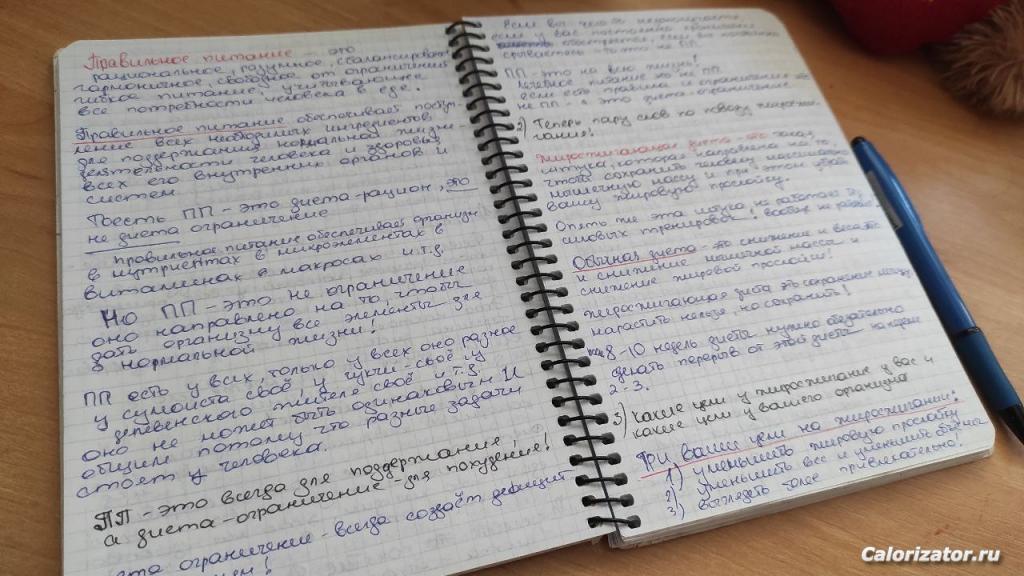 Правильное питание - это
рациональное, разумное, сбалансированное
гармоничное, свободное от ограничений
гибкое питание, учитывающее
все потребности человека в еде.
Правильное питание обеспечивает поступ-
ление всех необходимых ингредиентов
для поддержания нормальной жизне-
деятельности человека и здоровья
всех его внутренних органов и
систем.
Тоесть ПП - это диета-рацион, это
не диета ограничение
Правильное питание обеспечивает организм
в нутриентах в микроэлементах в
витаминах в макросах и.т.д.
Но ПП - это не ограничение
оно направлено на то, чтобы
дать организму все элементы для
нормальной жизни!
ПП есть у всех, только у всех оно разное
у сумоиста своё, у чукчи - своё, у
деревенского жителя своё и.т.д.
оно не может быть одинаковым и
общим потому что разные задачи
стоят у человека.
ПП - это всегда для поддержания,
а диета-ограничение - для похудения!
ограничение - всегда создаёт дефицит
Если вы что-то
если у вас постоянно
то это не ПП
ПП - это на всю жизнь!
Лечебное питание это не ПП
если есть правила и ограничения это
не ПП - а это диета-ограничение
2) Теперь пару слов по поводу жиросжи-
гания!
Жиросжигающая диета - это такая
штука, которая направлена на то,
чтобы сохранить человеку максимально
мышечную массу и при этом убрать
вашу жировую прослойку.
Опять же эта штука не работает без
силовых тренировок, вообще не работает
Обычная диета - это снижение и веса
и снижение мышечной массы и
снижение жировой прослойки!
Жиросжигающая диета это сохранение мышц,
нарастить нельзя, но сохранить!
8-10 недель диеты нужно обязательно
делать перерыв от этой диеты на недели
2-3.
3) Какие цели у жиросжигания у вас и
какие цели у вашего организма
Три ваших цели на жиросжигании:
1) уменьшить жировую прослойку
2) уменьшить вес и уменьшить объёмы
3) выглядеть более привлекательно!
Calorizator.ru